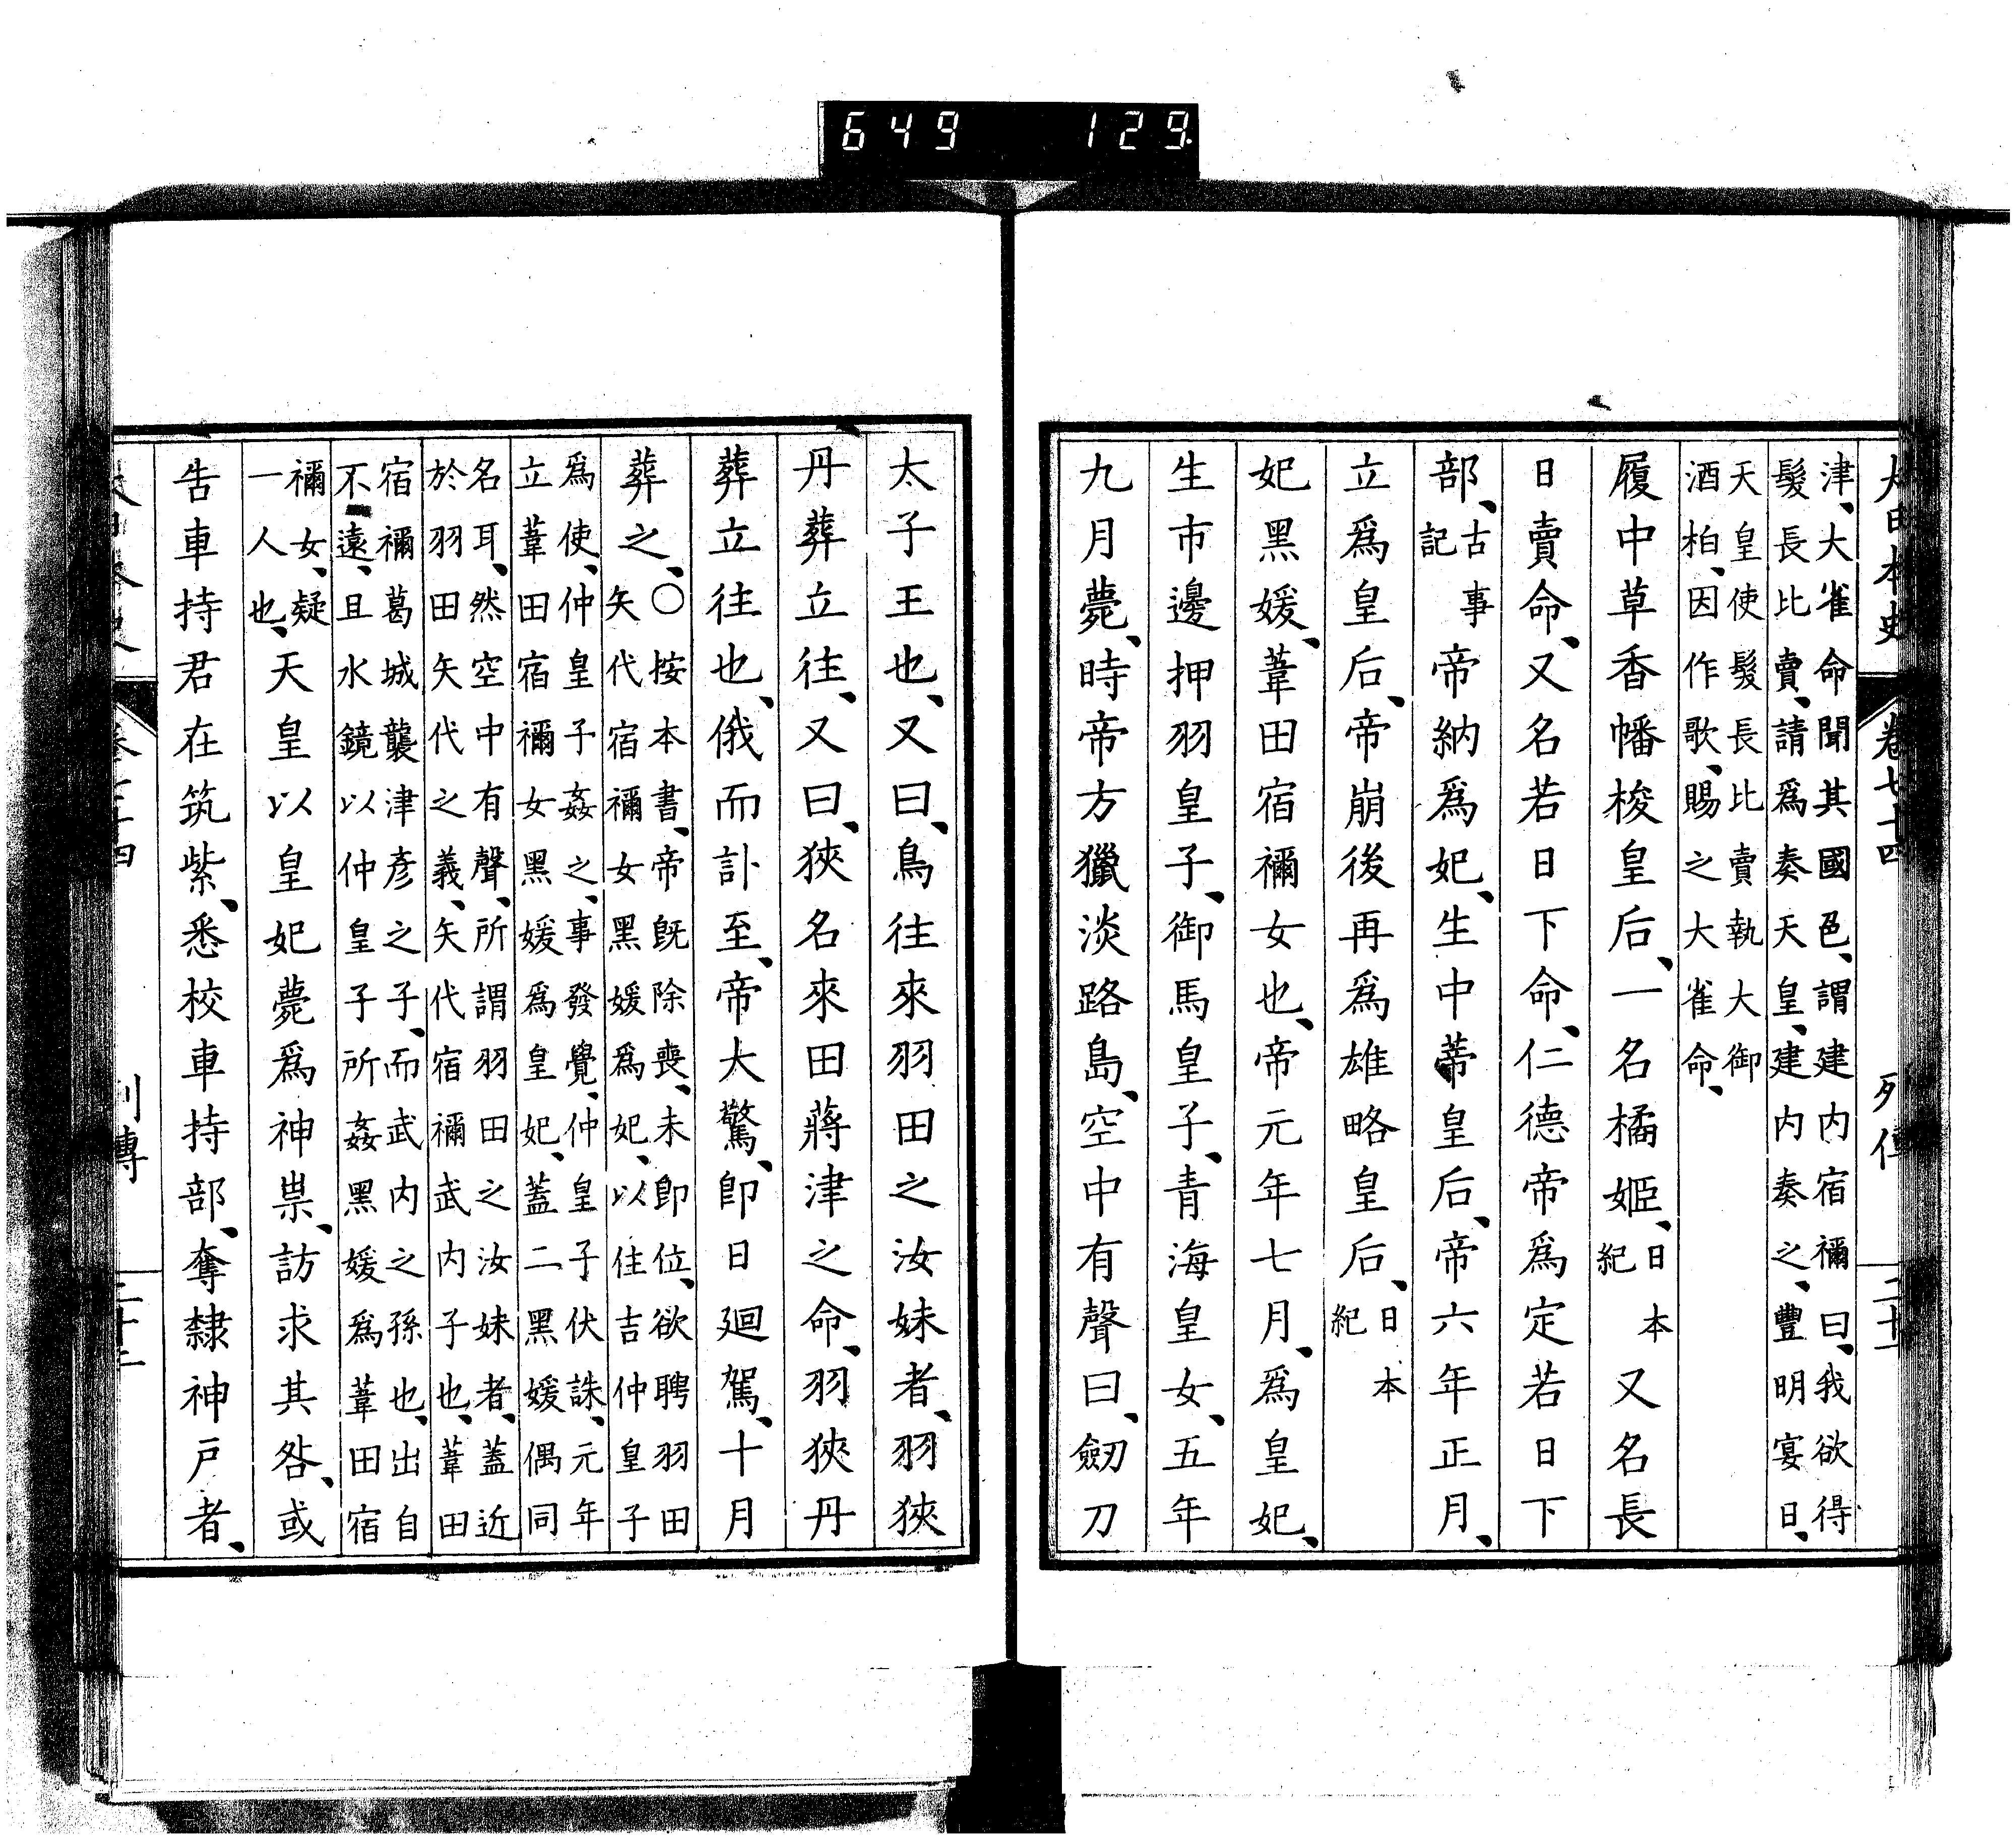 649 129.
大日本史 卷七十四 列傳 二十一
津、大雀命聞其國色、謂建内宿禰曰、我欲得
髮長比賣、請爲奏天皇、建内奏之、豐明宴日、
天皇使髮長比賣執大御
酒柏、因作歌、賜之大雀命、
履中草香幡梭皇后、一名橘姬、
日本
紀
又名長
日賣命、又名若日下命、仁德帝爲定若日下
部、
古事
記
帝納爲妃、生中蒂皇后、帝六年正月、
立爲皇后、帝崩後再爲雄略皇后、
日本
紀
妃黑媛、葦田宿禰女也、帝元年七月、爲皇妃、
生市邊押羽皇子、御馬皇子、青海皇女、五年
九月薨、時帝方獵淡路島、空中有聲曰、劒刀
太子王也、又曰、鳥往來羽田之汝妹者、羽狹
丹葬立往、又曰、狹名來田蔣津之命、羽狹丹
葬立往也、俄而訃至、帝大驚、卽日廻駕、十月
葬之、
○按本書、帝既除喪、未卽位、欲聘羽田
矢代宿禰女黑媛爲妃、以住吉仲皇子
爲使、仲皇子姦之、事發覺、仲皇子伏誅、元年
立葦田宿禰女黑媛爲皇妃、蓋二黑媛偶同
名耳、然空中有聲、所謂羽田之汝妹者、蓋近
於羽田矢代之義、矢代宿禰武内子也、葦田
宿禰葛城襲津彥之子、而武内之孫也、出自
不遠、且水鏡以仲皇子所姦黑媛爲葦田宿
禰女、疑
一人也、
天皇以皇妃薨爲神祟、訪求其咎、或
告車持君在筑紫、悉校車持部、奪隸神戸者、